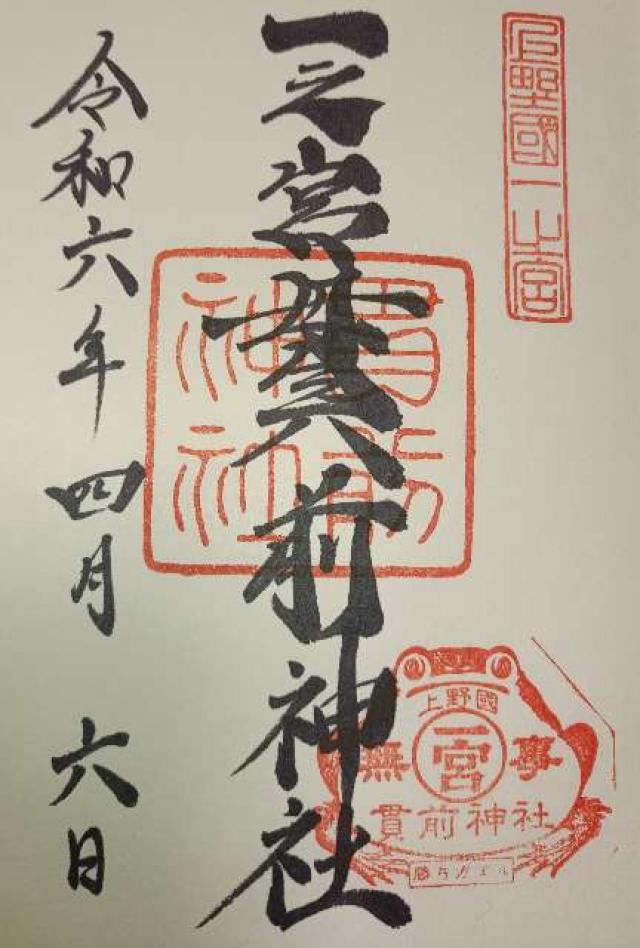 上野國一之宮
一之宮貫前神社
貫前神社
上野國
一宮
無事
貫前神社
勝ちガエル
令和六年四月六日